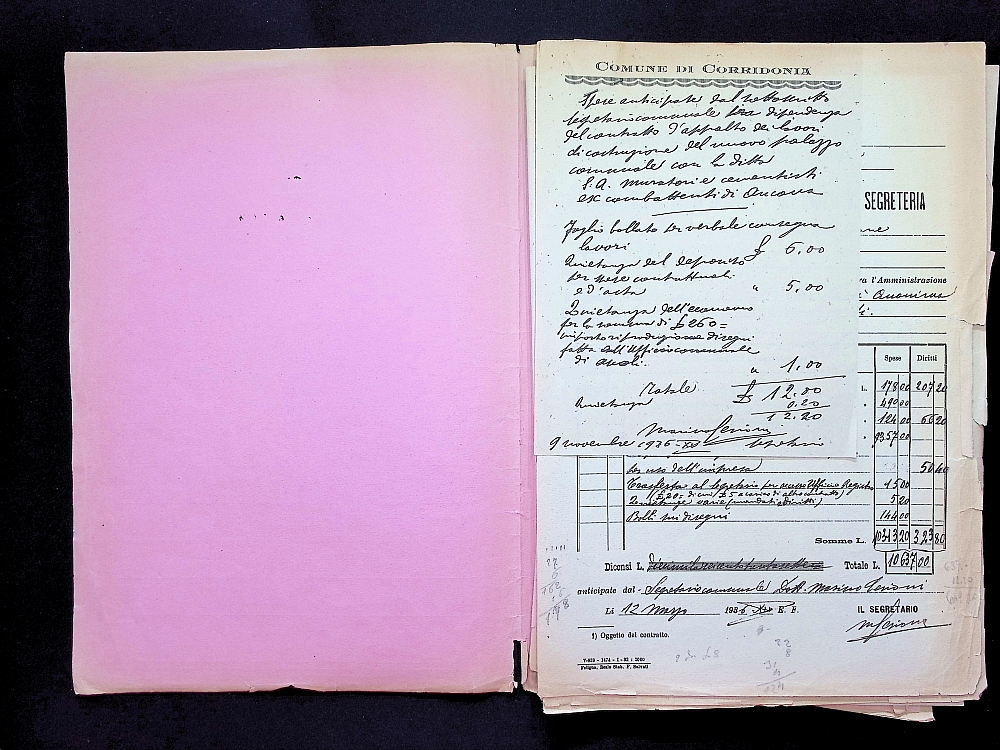 COMUNE DI CORRIDONIA
Spese anticipate dal sottoscritto
segretario comunale in dipendenza
del contratto d'appalto dei lavori
di costruzione del nuovo palazzo
comunale con la ditta
S.A. Muratori e cementisti
ex combattenti di Ancona
Foglio bollato per verbale consegna
lavori £ 6,00
Quietanza del deposito
per spese contrattuali
ed'asta " 5,00
Quietanza dell'economo
per la somma di £ 260=
importo riproduzione disegni
fatta dall'Ufficio comunale
di Ascoli. " 1,00
Totale £ 12.00
Quietanza 0.20
12.20
Marino
9 novembre 1936-XV Segretario
SEGRETERIA
va l'Amministrazione
Anonima
Spese Diritti
L. 178 00 207 20
" 490 00
" 124 00 66 20
" 9357 00
per uso dell'impresa 50 40
Trasferta al Segretario per accesso Ufficio Registro 15 00
(£ 20= di cui £ 5 a carico di altro contratto)
Quietanze varie (mandati e diritti) 5 20
Bolli sui disegni 144 00
Somme L. 10313 20 323 80
Diconsi L. Totale L. 10637 00
anticipate dal Segretario comunale Dott. Marino
Lì 12 Marzo 193 E. F. IL SEGRETARIO
1) Oggetto del contratto.
Foligno, Reale Stab. F. Salvati